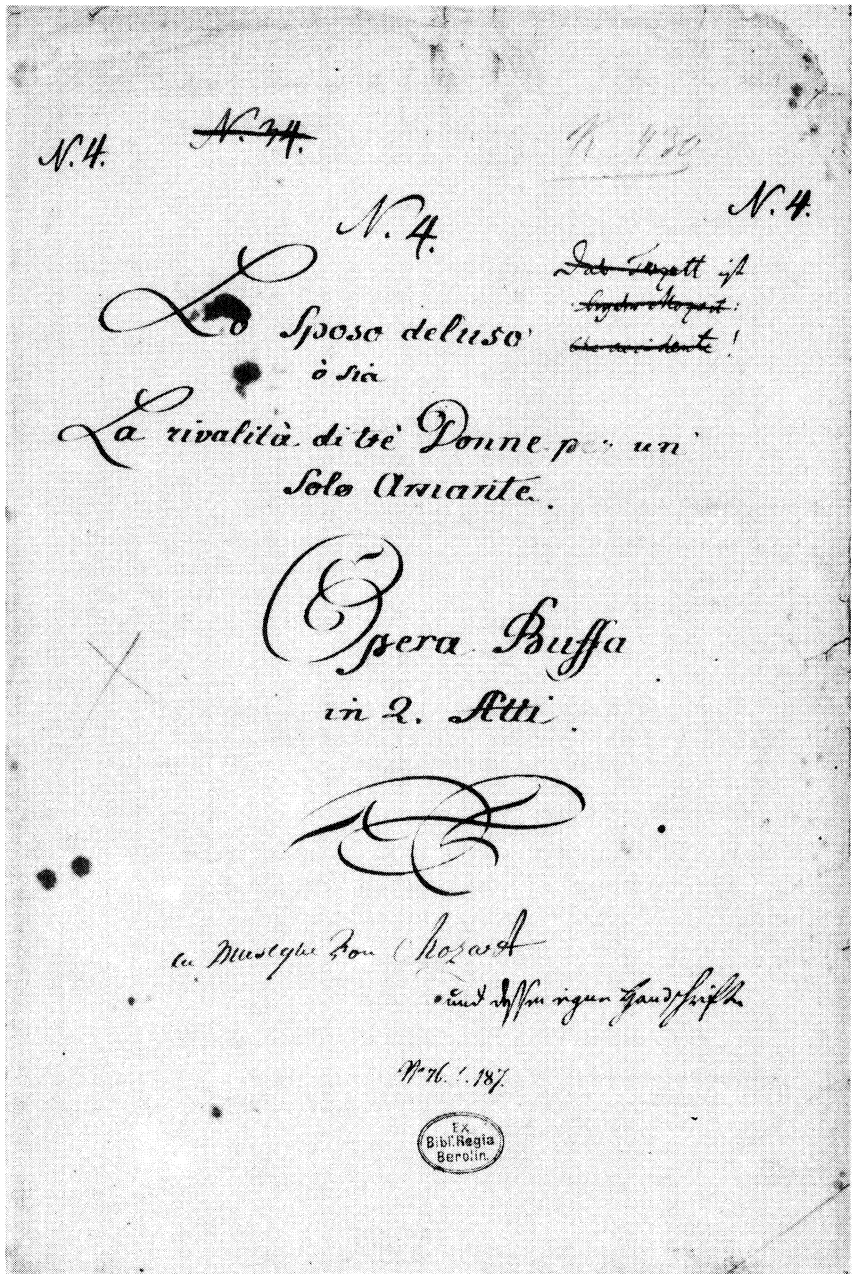 N. 34.
N. 4.
K 430
N. 4.
N. 4.
Das Terzett ist
Lo Sposo deluso
ò sia
La rivalità di trè Donne per un
Solo Amante.
Opera Buffa
in 2. Atti
von Mozart
und dessen eigne Handschrift.
Ex
Bibl. Regia
Berolin.